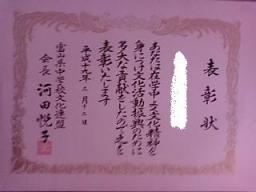 表彰状
あなたは在学中よく文化精神を
身につけ文化活動振興のために
多大な貢献をしたので之を
表彰いたします
平成十九年三月十二日
富山県中学校文化連盟
会長 河田悦子